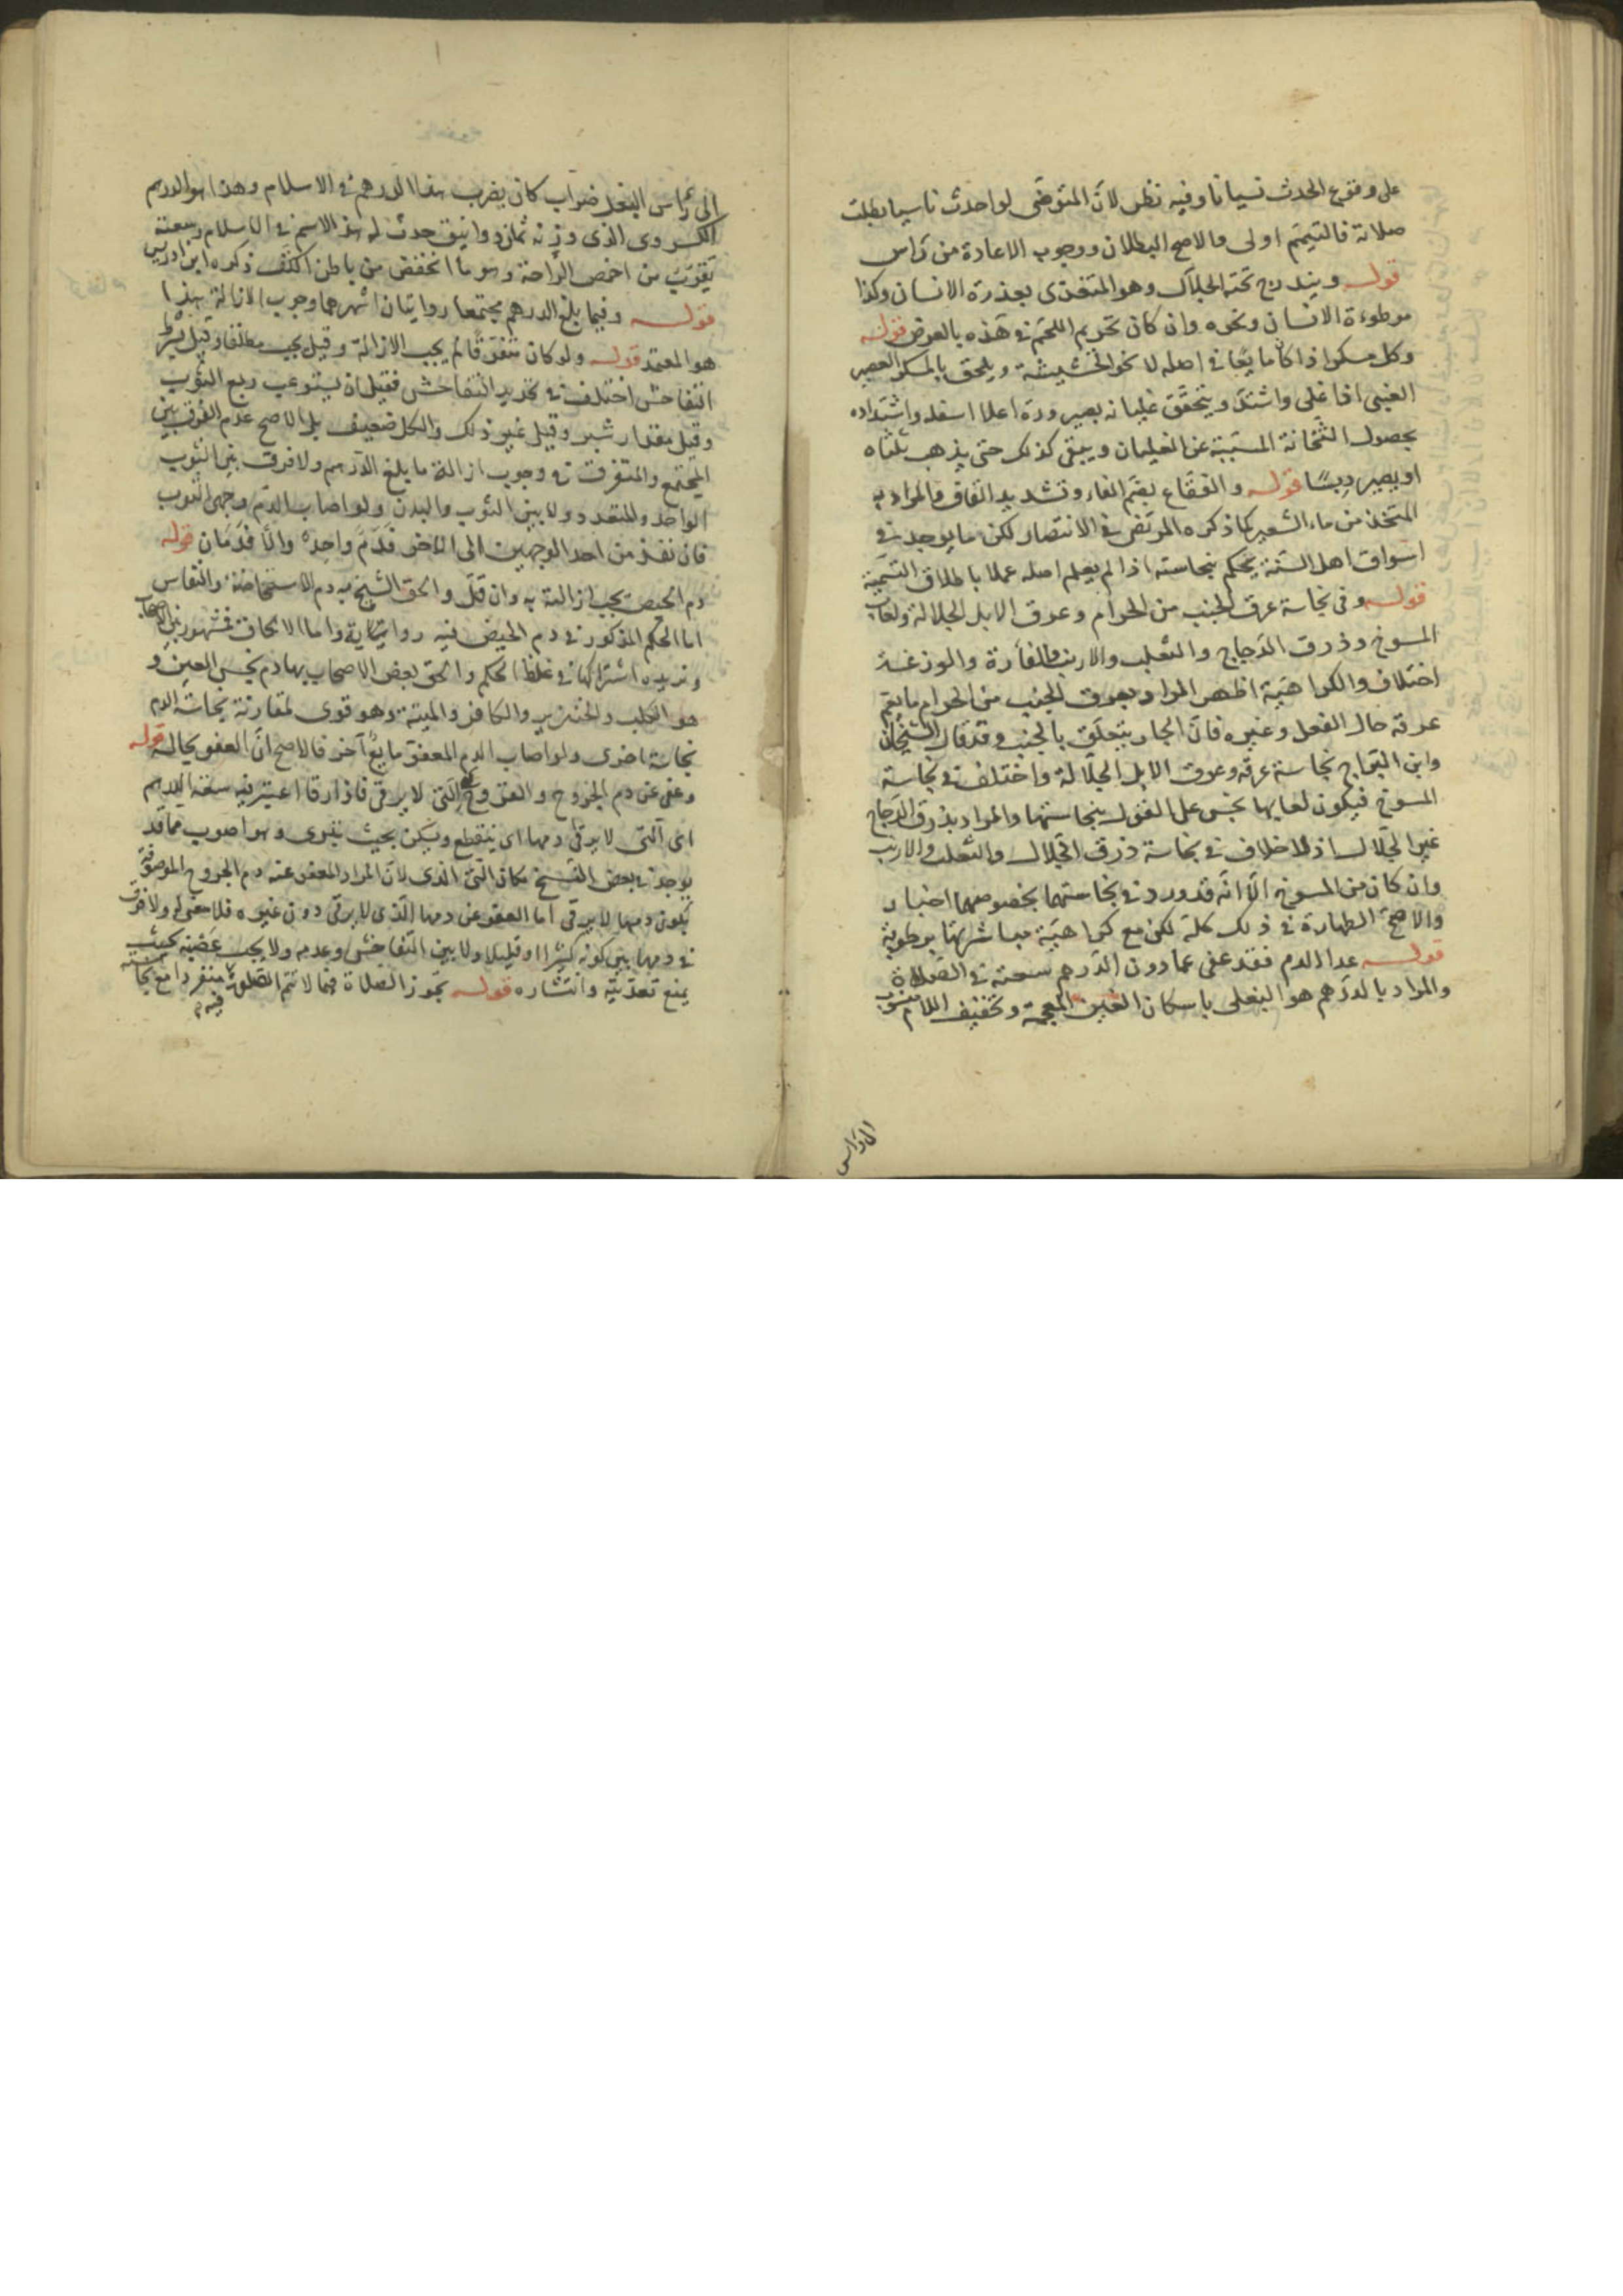 على وقوع الحدث نسيانا وفيه نظر لانّ المتوضّى لو احدث ناسيا بطلت
صلاته فالتيمّم اولى والاصح البطلان ووجوب الاعادة من رأس
قوله ويندرج تحته الجلاّل وهو المتغذى بعذرة الانسان وكذا
موطوءة الانسان ونحوه وان كان تحريم اللحم فى هذه بالعرض قوله
وكل مسكر اذا كان مايعا فى اصله لا نحو الحشيشة ويلحق بالمسكر العصير
العنبى اذا غلى واشتدّ ويتحقّق غليانه بصيرورة اعلاه اسفله واشتداده
بحصول الثّخانة المسبّبة عن الغليان ويبقى كذلك حتى يذهب ثلثاه
او يصير دبسًا قوله والفقّاع بضمّ الفاء وتشديد القاف والمراد به
المتّخذ من ماء الشعير كما ذكره المرتضى فى الانتصار لكن ما يوجد فى
اسواق اهل السّنة يحكم بنجاسته اذا لم يعلم اصله عملا باطلاق التسمية
قوله وفى نجاسة عرق الجنب من الحرام وعرق الابل الجلالة ولعاب
المسوخ وذرق الدّجاج والثعلب والارنب والفأرة والوزغة
اختلاف والكراهيّة اظهر المراد بعرق الجنب من الحرام ما يعمّ
عرقه حال الفعل وغيره فانّ الجار يتعلّق بالجنب وقد قال الشيخان
وابن البرّاج بنجاسة عرقه وعرق الابل الجلّالة واختلف فى نجاسة
المسوخ فيكون لعابها نجس على القول بنجاستها والمراد بذرق الدّجاج
غير الجلّال اذ لا خلاف فى نجاسة ذرق الجلال والثعلب والارنب
وان كان من المسوخ الّا انّه قد ورد فى نجاستهما بخصوصهما اخبار
والاصحّ الطهارة فى ذلك كلّه لكن مع كراهيّة مباشرتها برطوبة
قوله عدا الدم فقد عفى عما دون الدّرهم سعته فى الصّلاة
والمراد بالدّرهم هو البغلى باسكان الغين المعجمة وتخفيف اللام منسوب
الى رأس البغل ضرّاب كان يضرب هذا الدّرهم فى الاسلام وهذا هو الدرهم
الكسروى الذى وزنه ثمانية دوانيق حدث له هذا الاسم فى الاسلام وسعته
تقرب من اخمص الرّاحة وهو ما انخفض من باطن الكفّ ذكره ابن ادريس
قوله وفيما بلغ الدرهم مجتمعا روايتان اشهرهما وجوب الازالة هذا
هو المعتمد قوله ولو كان متفرّقا لم يجب الازالة وقيل يجب مطلقا وقيل بشرط
التفاحش اختلف فى تحديد التفاحش فقيل ان يستوعب ربع الثوب
وقيل مقدار شبر وقيل غير ذلك والكل ضعيف بل الاصح عدم الفرق بين
المجتمع والمتفرّق فى وجوب ازالة ما بلغ الدّرهم ولا فرق بين الثوب
الواحد والمتعدد ولا بين الثوب والبدن ولو اصاب الدّم وجهى الثوب
فان نفذ من احد الوجهين الى الاخر فدمٌ واحد والّا فدمان قوله
دم الحيض تجب ازالته به وان قلّ والحق الشيخ به دم الاستحاضة والنفاس
اما الحكم المذكور فى دم الحيض ففيه رواية واما الالحاق فمشهور بين الاصحاب
ويؤيده اشتراكها فى غلظ الحكم والحق بعض الاصحاب بها دم نجس العين و
هو الكلب والخنزير والكافر والميتة وهو قوى لمقارنة نجاسة الدم
نجاسة اخرى ولو اصاب الدم المعفوّ مايعٌ آخر فالاصح انّ العفو بحاله قوله
وعفى عن دم الجروح والقروح الّتى لا يرقى فاذا رقا اعتبر فيه سعة الدرهم
اى الّتى لا يرقى دمها اى ينقطع ويسكن بحيث
يوجد فى بعض النّسخ مكان الّتى الذى لانّ المراد العفو عنه دم الجروح الموصوفة
بكون دمها لا يرقى اما العفو عن دمها الّذى لا يرقى دون غيره فلا معنى له ولا فرق
فى دمها بين كونه كثيرا او قليلا ولا بين التفاحش وعدمه ولا يجب عصبه بحيث
يمنع تعدّيه وانتشاره قوله تجوز الصلاة فيما لا تتم الصلوة فيه منفردا مع نجاسته
الى رأس